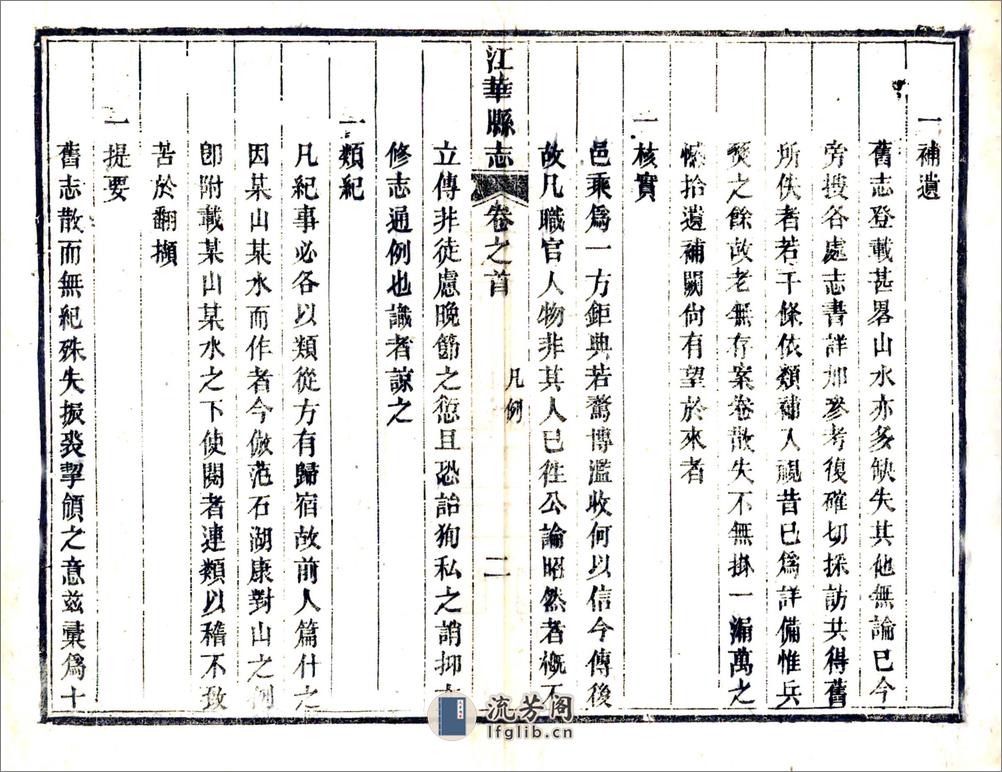 一補遺
舊志登載甚畧山水亦多缺失其他無論已今
旁搜各處志書詳加參考復確切採訪共得舊
所佚者若干條依類補入視昔已爲詳備惟兵
燹之餘故老無存案卷散失不無掛一漏萬之
憾拾遺補闕尙有望於來者
一核實
邑乘爲一方鉅典若驚博濫收何以信今傳後
故凡職官人物非其人已往公論昭然者槪不
江華縣志 卷之首 凡例 二
立傳非徒慮晚節之愆且恐詒狥私之誚抑亦
修志通例也識者諒之
一類紀
凡紀事必各以類從方有歸宿故前人篇什之
因某山某水而作者今倣范石湖康對山之例
卽附載某山某水之下使閱者連類以稽不致
苦於翻擷
一提要
舊志散而無紀殊失振裘挈領之意兹彚爲十
流芳阁
lfglib.cn